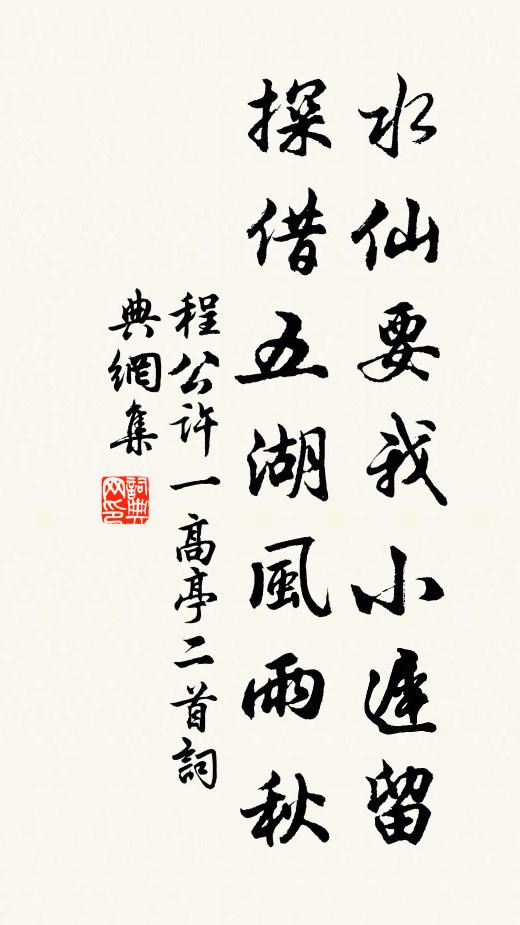 水仙要我小遲留
探借五湖風雨秋
程公許一高亭二首詞
典網集
詞典
网印